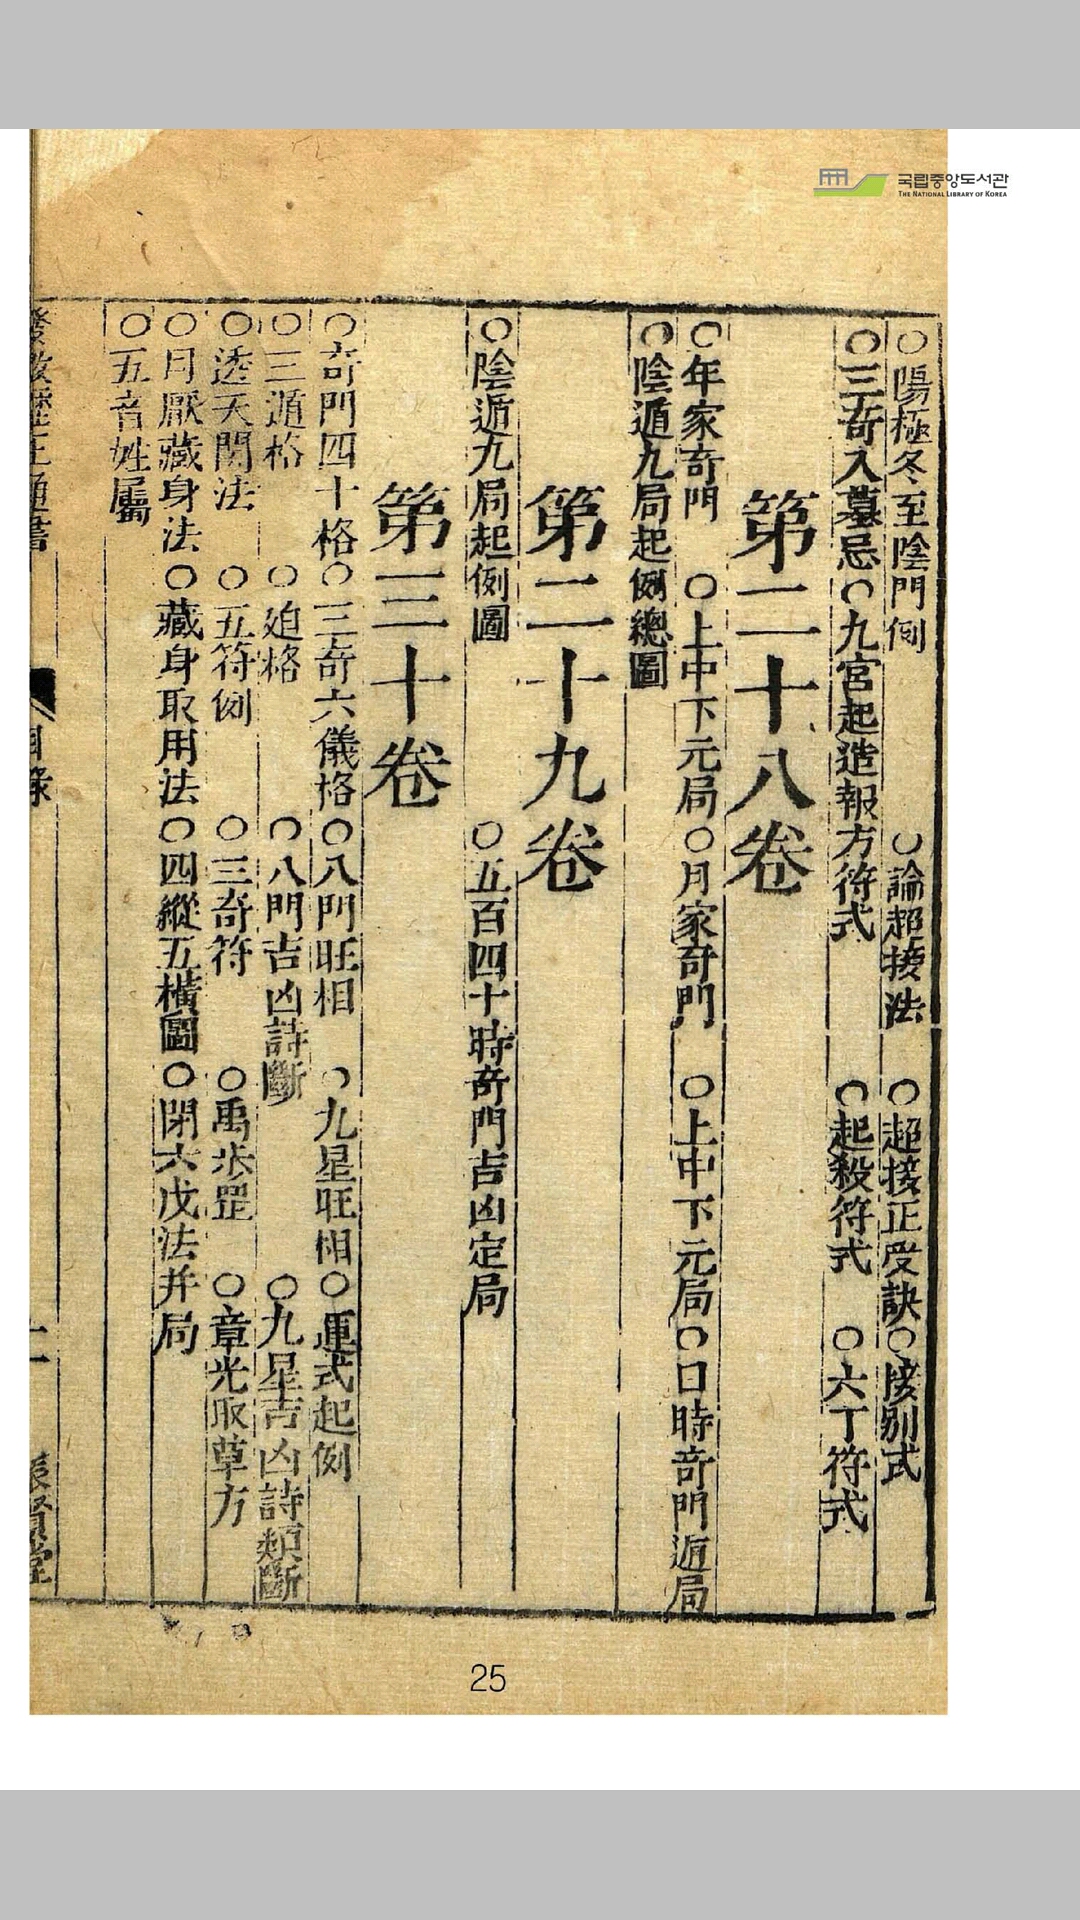 국립중앙도서관
THE NATIONAL LIBRARY OF KOREA
○陽極冬至陰門例 ○論超接法 ○超接正受訣○接别式
○三奇入墓忌○九宮起造報方符式 ○起殺符式 ○六丁符式
第二十八卷
○年家奇門 ○上中下元局○月家奇門 ○上中下元局○日時奇門遁局
○陰遁九局起例總圖
第二十九卷
○陰遁九局起例圖 ○五百四十時奇門吉凶定局
第三十卷
○奇門四十格○三奇六儀格○八門旺相 ○九星旺相○運式起例
○三遁格 ○廹格 ○八門吉凶詩斷 ○九星吉凶詩類斷
○透天関法 ○五符例 ○三奇符 ○禹步罡 ○章光取草方
○月厭藏身法○藏身取用法○四縱五橫圖○閉六戊法并局
○五音姓屬
目錄
25